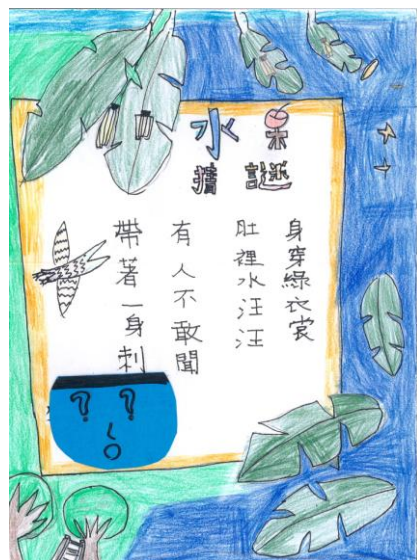 水果
猜謎
身穿綠衣裳
肚裡水汪汪
有人不敢聞
帶著一身刺
? ?